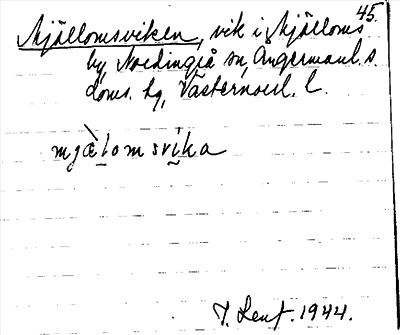 45.
Mjällomsviken, vik i Mjälloms
by, Nordingrå sn, Ångermanl. s
doms. hg, Västernorrl. l.
mjæ̀lomsvika
1944.